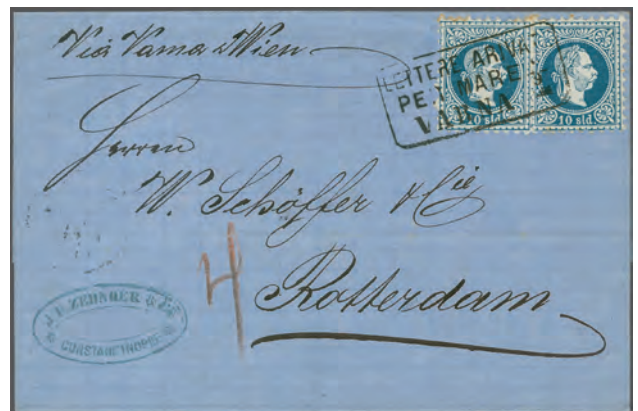 Via Varna Wien
LETTERE ARIVA
PER MARE
VARNA
10 sld.
10 sld.
Herren
W. Schöffer & Cie
Rotterdam
4
J. F. ZEHNGER &
CONSTANTINOPEL